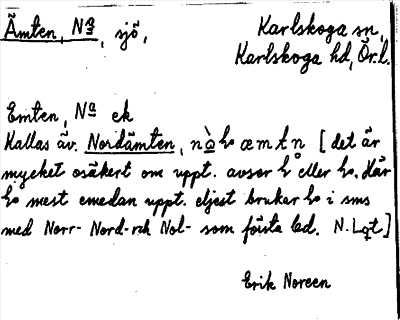 Ämten, Na, sjö, Karlskoga sn,
Karlskoga hd, Ör.l.
Emten, Na ek
Kallas äv. Nordämten, [det är
mycket osäkert om uppt. avser eller Här
mest emedan uppt. eljest brukar i sms
med Norr- Nord- och Nol- som första led. N. Lgt]
Erik Noreen